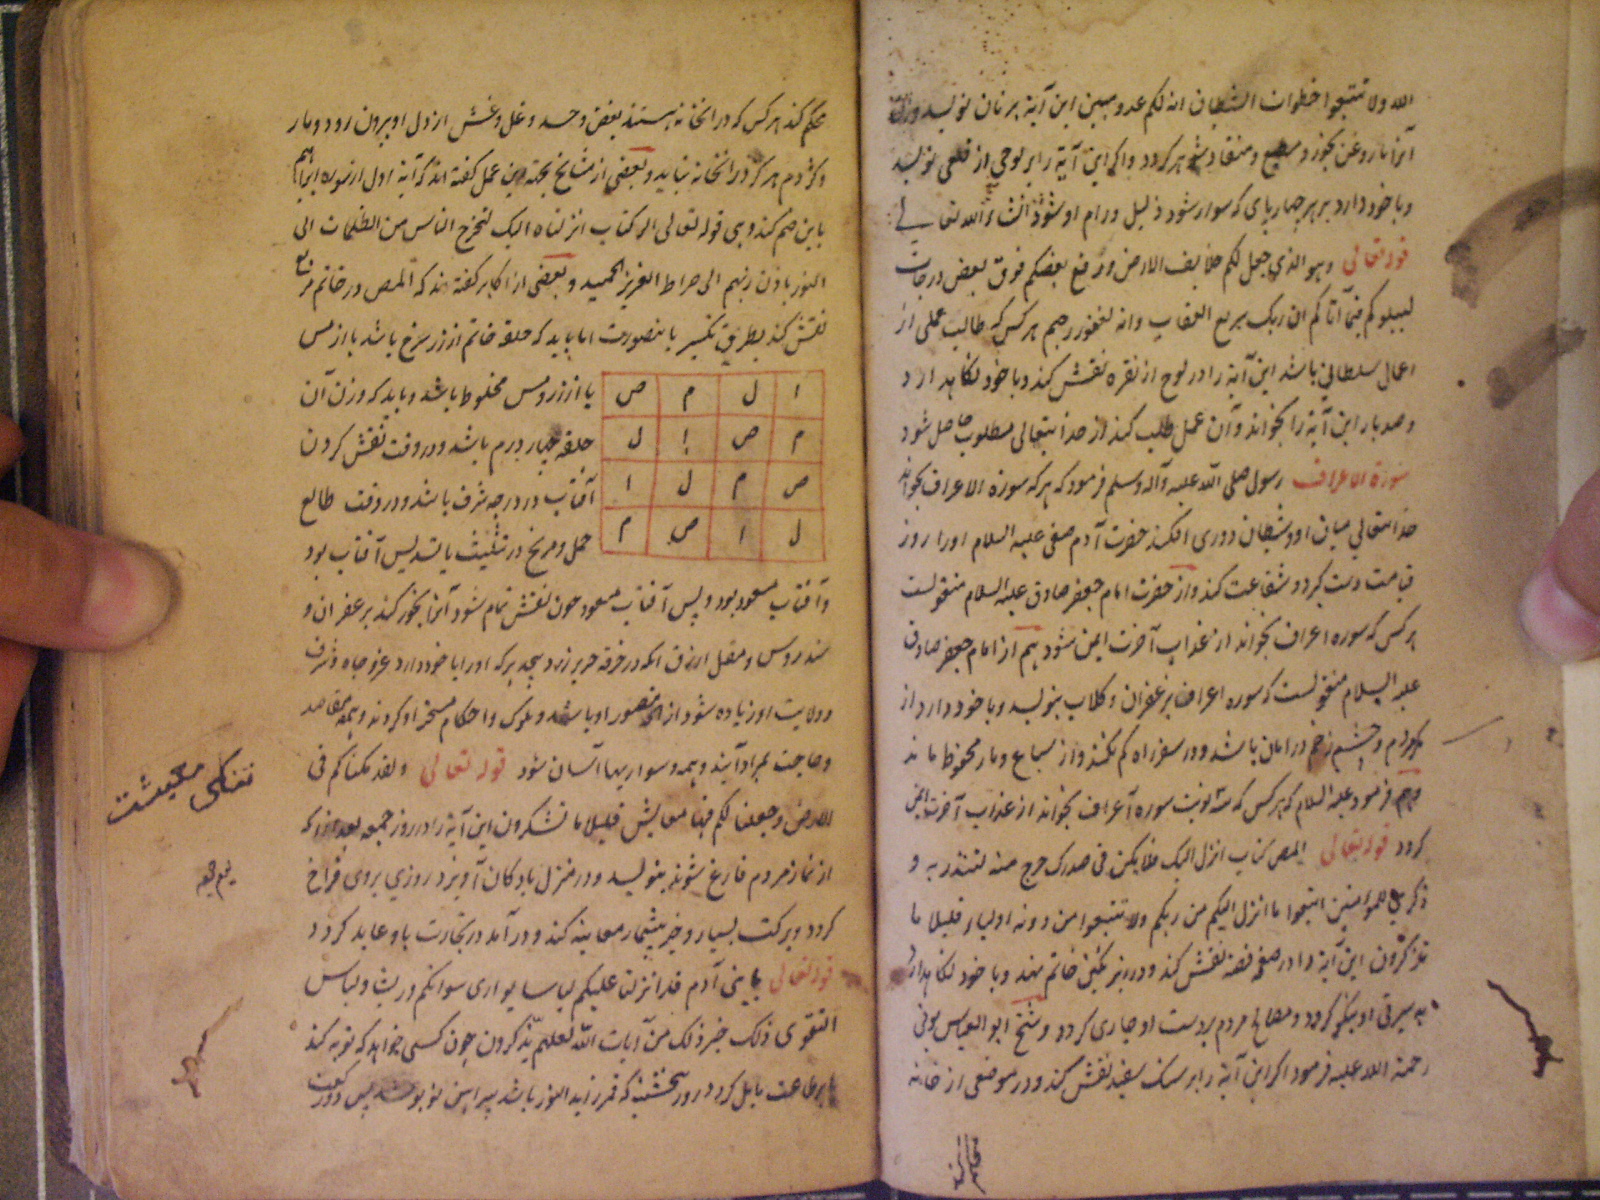 الله ولا تتبعوا خطوات الشیطان انه لکم عدو مبین این آیة بر نان نویسد و
آنرا با روغن بخورد مطیع و منقاد شوهر کردد واکر این آیة را بر لوحی از قلعی نویسد
و با خود دارد بر هر چهارپای که سوار شود ذلیل و رام او شود انشاءالله تعالی
قوله تعالی وهو الذی جعل لکم خلایف الارض ورفع بعضکم فوق بعض درجات
لیبلوکم فیما آتاکم ان ربک سریع العقاب وانه لغفور رحیم هر کس که طالب عملی از
اعمال سلطانی باشد این آیة را در لوح از نقره نقش کند وبا خود نکاهدارد
وصد بار این آیة را بخواند وآن عمل طلب کند از خدایتعالی مطلوب حاصل شود
سورة الاعراف رسول صلی الله علیه وآله وسلم فرمود که هر که سورة الاعراف بخواند
خدایتعالی میان او وشیطان دوری افکند حضرت آدم صفی علیه السلام اورا روز
قیامت دست کیرد وشفاعت کند واز حضرت امام جعفر صادق علیه السلام منقولست
هر کس که سوره اعراف بخواند از عذاب آخرت ایمن شود هم از امام جعفر صادق
علیه السلام منقولست که سوره اعراف بزعفران وکلاب بنویسد وبا خود دارد از
مردم وچشم زخم در امان باشد ودر سفر راه کم نکند واز سباع ومار محفوظ ماند
وهم فرمود علیه السلام که هر کس که نوبت سوره اعراف بخواند از عذاب آخرت ایمن
کردد قوله تعالی المص کتاب انزل الیک فلا یکن فی صدرک حرج منه لتنذر به و
ذکری للمؤمنین اتبعوا ما انزل الیکم من ربکم ولا تتبعوا من دونه اولیاء قلیلا ما
تذکرون این آیة را در صفحه فضه نقش کند ودر زیر نکین خاتم نهد وبا خود نکاهدارد
سیرتی او نیکو کردد ومصالح مردم بردست او جاری کردد وشیخ ابو العباس بونی
رحمة الله علیه فرمود اکر این آیة را بر سنک سفید نقش کند ودر موضعی از خانه
محکم کند هر کس که در انخانه هستند بغض وحسد وغل وغش از دل او بیرون رود ومار
وکژدم هرکز در انخانه نیاید وبعضی از مشایخ بجهة این عمل کفته اند که آیة اول از سوره ابراهیم
با این ضم کند وهی قوله تعالی الر کتاب انزلناه الیک لتخرج الناس من الظلمات الی
النور باذن ربهم الی صراط العزیز الحمید وبعضی از اکابر کفته اند که المص در خاتم مربع
نقش کند بطریق تکسیر باینصورت اما باید که حلقه خاتم از زر سرخ باشد یا از مس
یا از زر ومس مخلوط باشد وباید که وزن آن
حلقه چهار درم باشد ودر وقت نقش کردن
آفتاب در درجه شرف باشد ودر وقت طالع
حمل ومریخ در تثلیث یا تسدیس آفتاب بود
ا ل م ص
م ص ا ل
ص م ل ا
ل ا ص م
وآفتاب مسعود بود وپس آفتاب مسعود چون نقش تمام شود آنرا بخور کند بزعفران و
سندروس ومقل ارزق انکه در خرقه حریر زرد پیچد هر که اورا با خود دارد عز وجاه وشرف
وولایت او زیاده شود منصور او باشد وملوک واحکام مسخر او کردند وهمه مقاصد
وحاجت بمراد آیند وهمه دشواریها آسان شود قوله تعالی ولقد مکناکم فی
الارض وجعلنا لکم فیها معایش قلیلا ما تشکرون این آیة را در روز جمعه بعد از انکه
از نماز مردم فارغ شوند بنویسد ودر منزل یا دکان آویزد روزی بروی فراخ
کردد وبرکت بسیار وخیر بیشمار معاینه کند ودر آمد در تجارت باو عاید کردد
قوله تعالی یا بنی آدم قد انزلنا علیکم لباسا یواری سوآتکم وریشا ولباس
التقوی ذلک خیر ذلک من آیات الله لعلهم یذکرون چون کسی خواهد که توبه کند
یا بر طاعت مایل کردد در روز پنجشنبه که قمر زاید النور باشد پیراهن نو بپوشد پس دو رکعت
تنکی معیشت